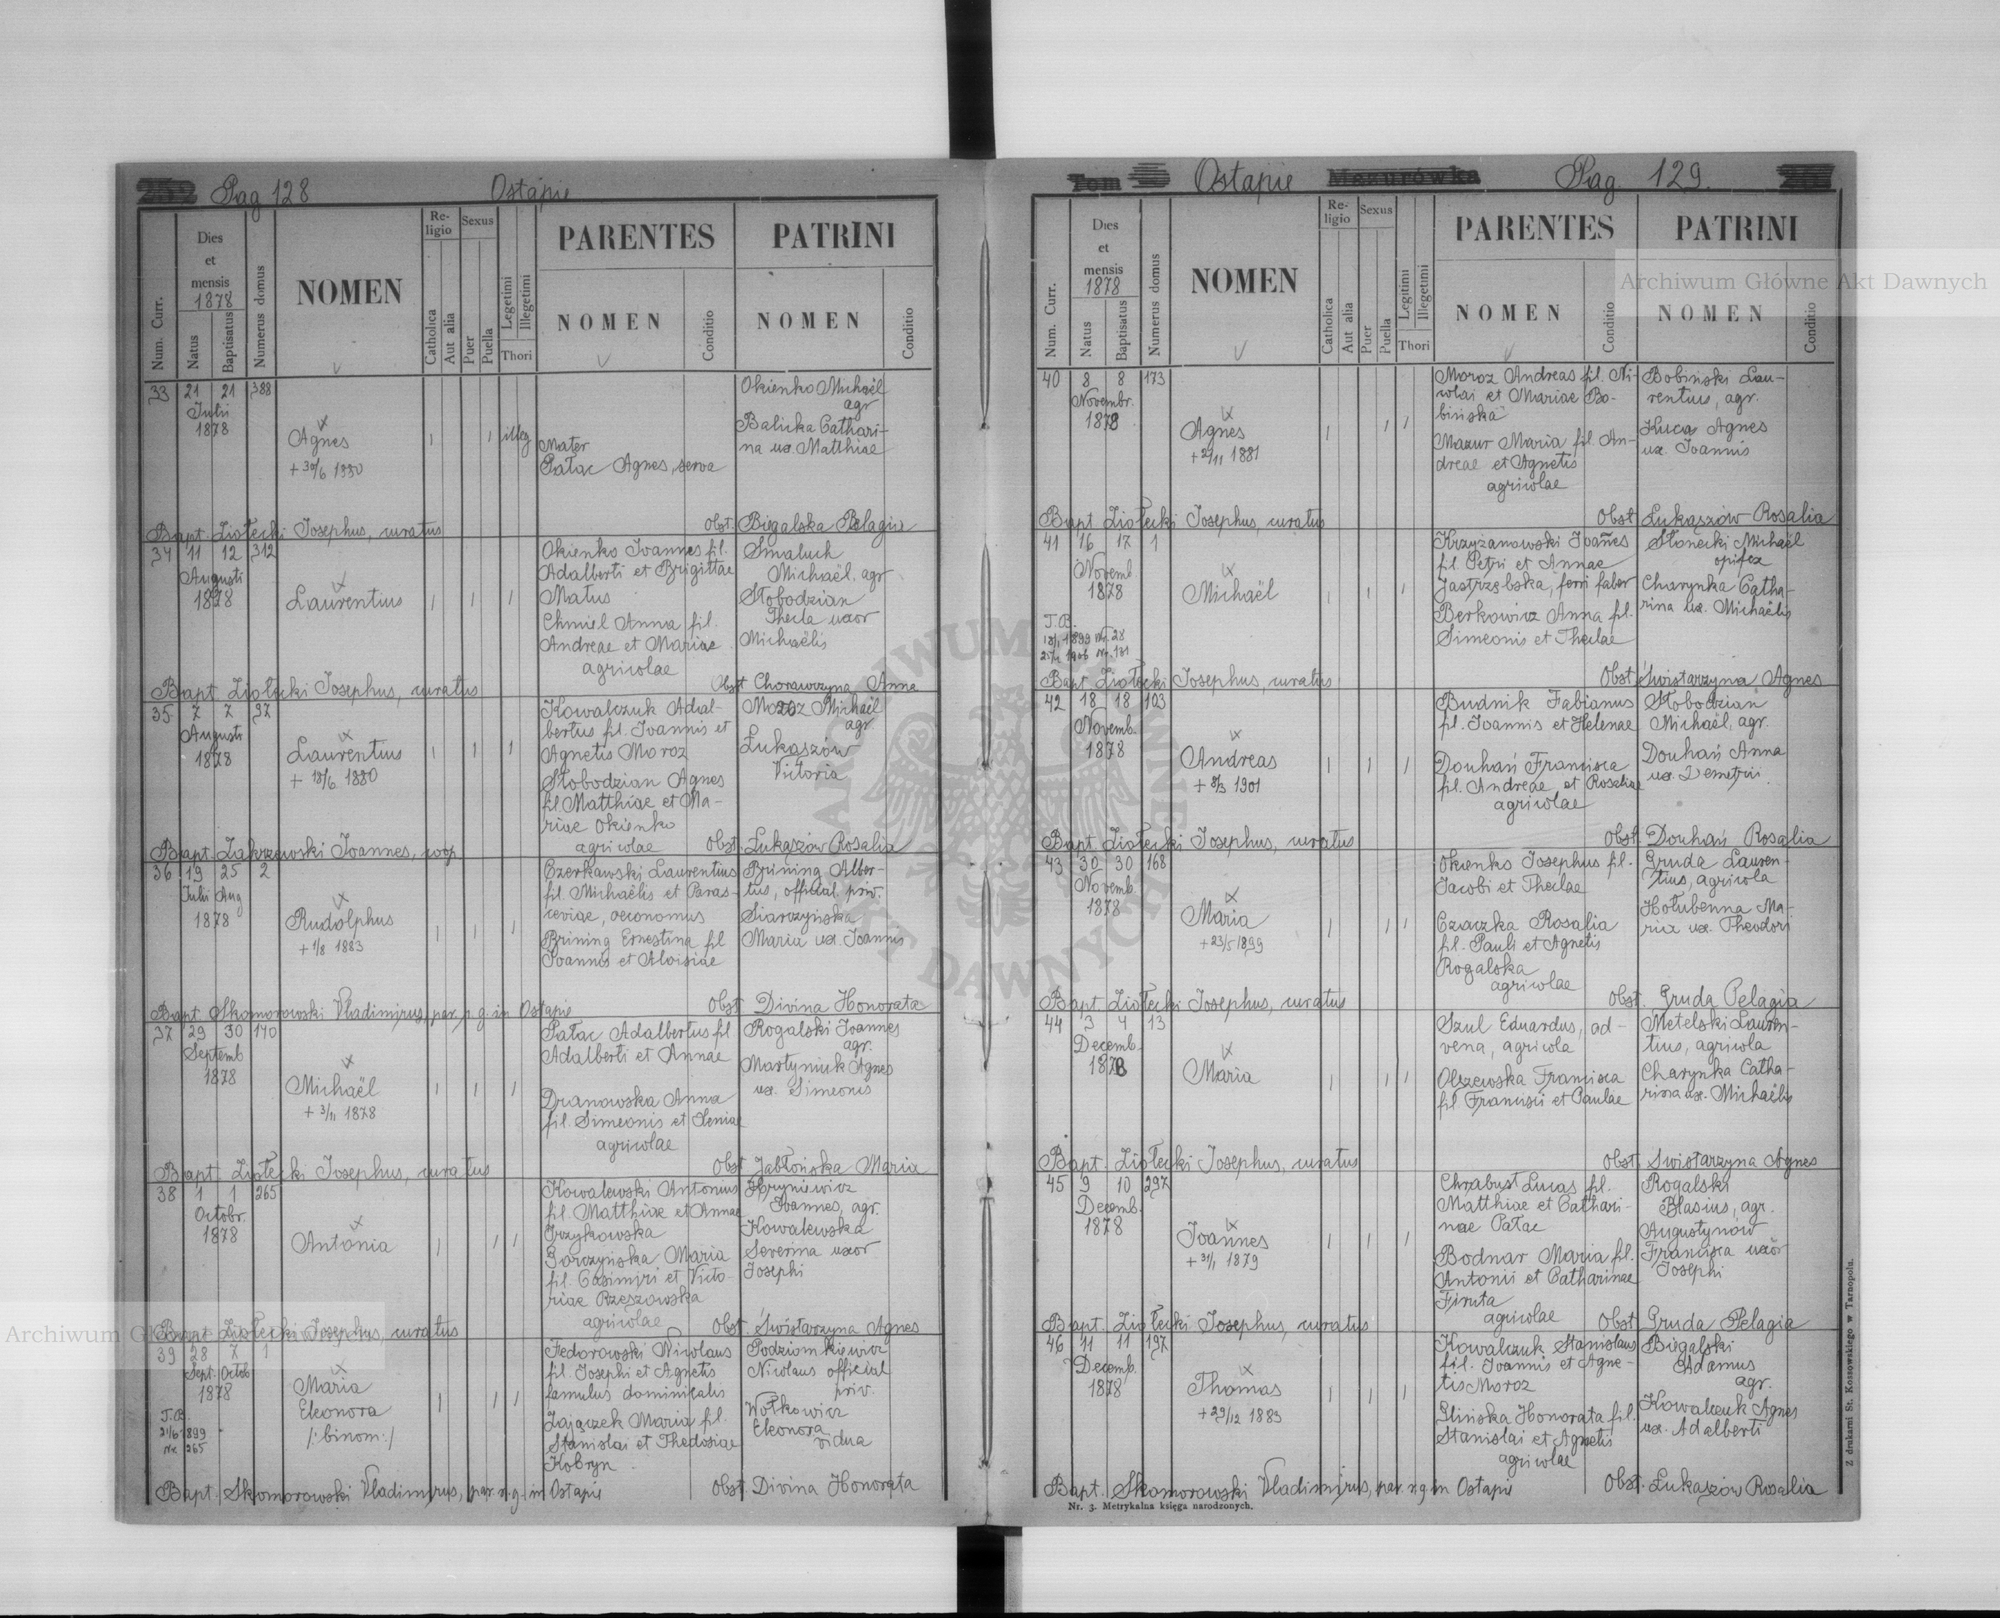 Pag 128 Ostapie
Num. Curr.
Dies
et
mensis
1878
Natus
Baptisatus
Numerus domus
NOMEN
Re-
ligio
Catholica
Aut alia
Sexus
Puer
Puella
Legetimi
Illegetimi
Thori
PARENTES
NOMEN
Conditio
PATRINI
NOMEN
Conditio
33 21 21 388
Julii
1878
Agnes
+ 30/6 1880
illeg
Mater
Pałac Agnes, serva
Okienko Michaël
agr
Balicka Cathari-
na ux. Matthiae
Bapt. Ziołecki Josephus, curatus Obst. Bigalska Pelagia
34 11 12 312
Augusti
1878
Laurentius
Okienko Joannes fil.
Adalberti et Brigittae
Matus
Chmiel Anna fil.
Andreae et Mariae
agricolae
Smaluch
Michaël, agr
Słobodzian
Thecla uxor
Michaëlis
Bapt. Ziołecki Josephus, curatus Obst Chorawczyna Anna
35 7 7 37
Augusti
1878
Laurentius
+ 18/6 1880
Kowalczuk Adal-
bertus fil. Joannis et
Agnetis Moroz
Słobodzian Agnes
fil. Matthiae et Ma-
riae Okienko
agricolae
Moroz Michaël
agr.
Lukaszów
Victoria
Bapt. Zakrzewski Joannes, coop Obst. Lukaszów Rosalia
36 19 25 2
Julii Aug
1878
Rudolphus
+ 1/8 1883
Czerkawski Laurentius
fil. Michaëlis et Paras-
ceviae, oeconomus
Brining Ernestina fil
Joannis et Aloisiae
Brining Alber-
tus, official priv.
Siarczyńska
Maria ux. Joannis
Bapt. Skomorowski Vladimirus, par. r. g. in Ostapie Obst. Divina Honorata
37 29 30 170
Septemb
1878
Michaël
+ 3/11 1878
Pałac Adalbertus fil
Adalberti et Annae
Dranowska Anna
fil. Simeonis et Xeniae
agricolae
Rogalski Joannes
agr.
Martyniuk Agnes
ux. Simeonis
Bapt. Ziołecki Josephus, curatus Obst. Jabłońska Maria
38 1 1 265
Octobr.
1878
Antonia
Kowalewski Antonius
fil. Matthiae et Annae
Grzykowska
Gorczyńska Maria
fil. Casimiri et Victo-
riae Rzeszowska
agricolae
Hryniewicz
Joannes, agr.
Kowalewska
Severina uxor
Josephi
Bapt. Ziołecki Josephus, curatus Obst. Świstarzyna Agnes
39 28 7 1
Sept. Octob
1878
Maria
Eleonora
/: binom:/
T. B.
21/6 1899
Nr. 265
Fedorowski Nicolaus
fil. Josephi et Agnetis
famulus dominicalis
Zajączek Maria fil.
Stanislai et Thedosiae
Kobryn
Podziomkiewicz
Nicolaus official
priv.
Wołkowicz
Eleonora
vidua
Bapt. Skomorowski Vladimirus, par. r. g. in Ostapie Obst. Divina Honorata
Tom Ostapie Mazurówka Pag. 129.
Num. Curr.
Dies
et
mensis
1878
Natus
Baptisatus
Numerus domus
NOMEN
Re-
ligio
Catholica
Aut alia
Sexus
Puer
Puella
Legitimi
Illegetimi
Thori
PARENTES
NOMEN
Conditio
PATRINI
NOMEN
Conditio
40 8 8 173
Novembr.
1878
Agnes
+ 2/11 1881
Moroz Andreas fil. Ni-
colai et Mariae Bo-
bińska
Mazur Maria fil. An-
dreae et Agnetis
agricolae
Bobiński Lau-
rentius, agr.
Kuca Agnes
ux. Joannis
Bapt Ziołecki Josephus, curatus Obst Lukaszów Rosalia
41 16 17 1
Novemb.
1878
Michaël
T. B.
Krzyżanowski Joañes
fil. Petri et Annae
Jastrzębska, ferri faber
Berkowicz Anna fil.
Simeonis et Theclae
Słonecki Michaël
opifex
Charynka Catha-
rina ux. Michaëlis
Bapt. Ziołecki Josephus, curatus Obst. Świstarzyna Agnes
42 18 18 103
Novemb.
1878
Andreas
+ 8/3 1901
Budnik Fabianus
fil. Joannis et Helenae
Douhań Francisca
fil. Andreae et Rosaliae
agricolae
Słobodzian
Michaël, agr.
Douhań Anna
ux. Demetrii
Bapt. Ziołecki Josephus, curatus Obst. Douhań Rosalia
43 30 30 168
Novemb.
1878
Maria
+ 23/5 1899
Okienko Josephus fil.
Jacobi et Theclae
Czaczka Rosalia
fil. Pauli et Agnetis
Rogalska
agricolae
Gruda Lauren-
tius, agricola
Hołubenna Ma-
ria ux. Theodori
Bapt. Ziołecki Josephus, curatus Obst. Gruda Pelagia
44 3 4 13
Decemb.
1878
Maria
Szul Eduardus, ad-
vena, agricola
Olszewska Francisca
fil Francisci et Paulae
Metelski Lauren-
tius, agricola
Charynka Catha-
rina ux. Michaëlis
Bapt. Ziołecki Josephus, curatus Obst. Swistarzyna Agnes
45 9 10 297
Decemb.
1878
Joannes
+ 31/1 1879
Chrabust Lucas fil.
Matthiae et Cathari-
nae Pałac
Bodnar Maria fil.
Antonii et Catharinae
Firuta
agricolae
Rogalski
Blasius, agr.
Augustynów
Francisca uxor
Josephi
Bapt. Ziołecki Josephus, curatus Obst Gruda Pelagia
46 11 11 197
Decemb.
1878
Thomas
+ 29/12 1883
Kowalczuk Stanislaus
fil. Joannis et Agne-
tis Moroz
Glińska Honorata fil.
Stanislai et Agnetis
agricolae
Bigalski
Adamus
agr.
Kowalczuk Agnes
ux. Adalberti
Bapt. Skomorowski Vladimirus, par. r. g in Ostapie Obst. Lukaszów Rosalia
Nr. 3. Metrykalna księga narodzonych.
Z drukarni St. Kossowskiego w Tarnopolu.
Archiwum Główne Akt Dawnych
ARCHIWUM GŁÓWNE AKT DAWNYCH